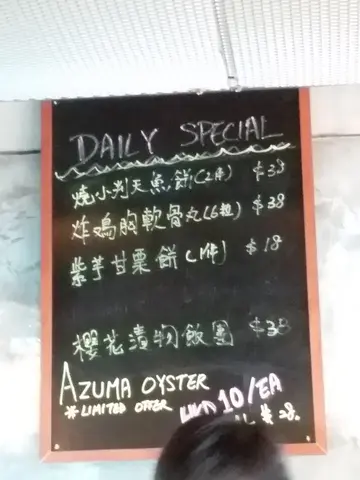 DAILY SPECIAL
燒小判天魚餅(2件) $33
炸鳮胸軟骨丸(6粒) $38
紫芋甘栗餅(1件) $18
櫻花漬物飯團 $38
AZUMA OYSTER
*LIMITED OFFER HKD 10/EA
28.